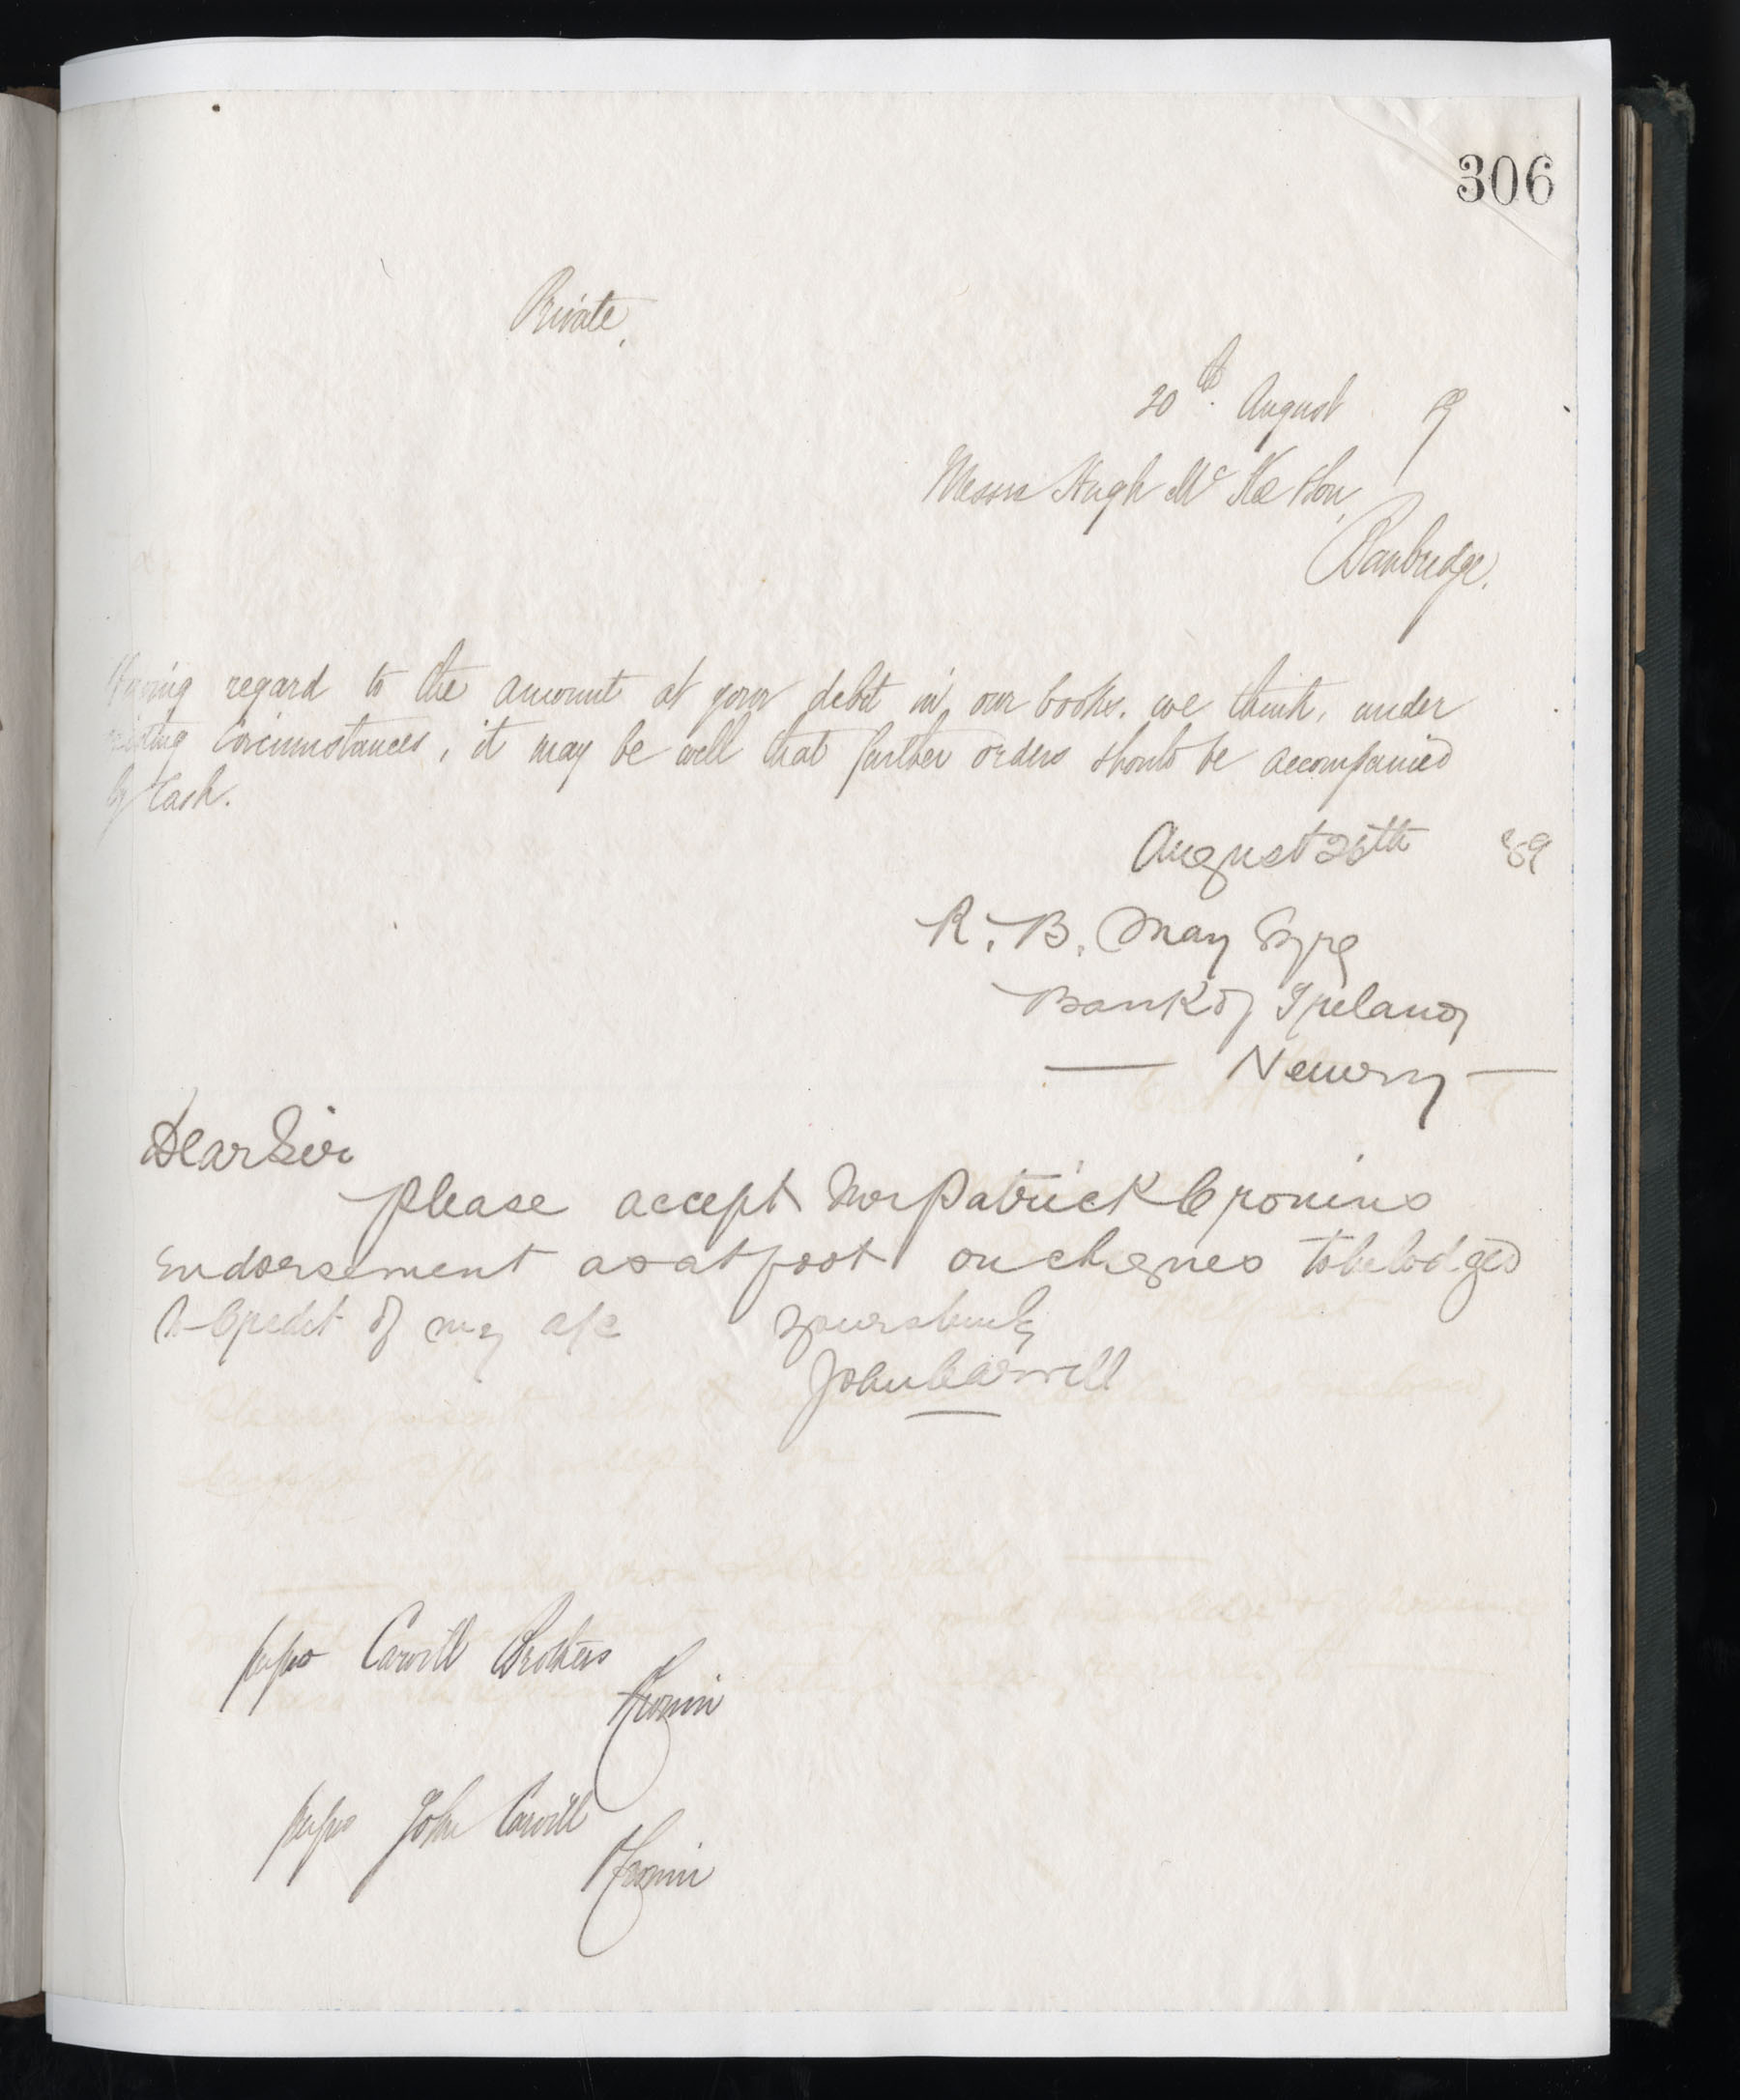 306
Private,
20th. August 9
Messrs Hugh Mc Kee Son,
Banbridge.
Having regard to the amount at your debit in our books. we think, under
existing Circumstances, it may be well that further orders should be accompanied
by Cash.
August 26th 89
R. B. May Esqre
Bank of Ireland
Newry
Dear Sir
please accept Mr Patrick Cronins
Endorsement as at foot on cheques to be lodged
to Credit of my a/c yours truly
John Carvill
pr pro Carvill Brothers
PCronin
pr pro John Carvill
PCronin